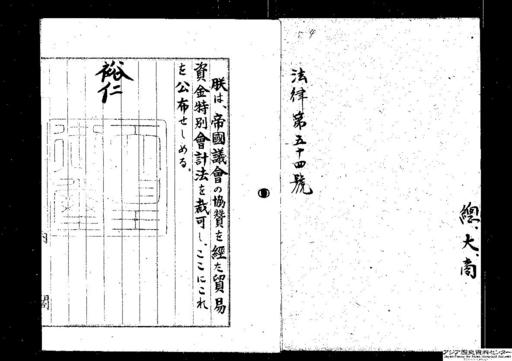 54
法律第五十四號
總、大、商
朕は、帝國議會の協贊を經た貿易
資金特別會計法を裁可し、ここにこれ
を公布せしめる。
裕仁
内
閣
アジア歴史資料センター